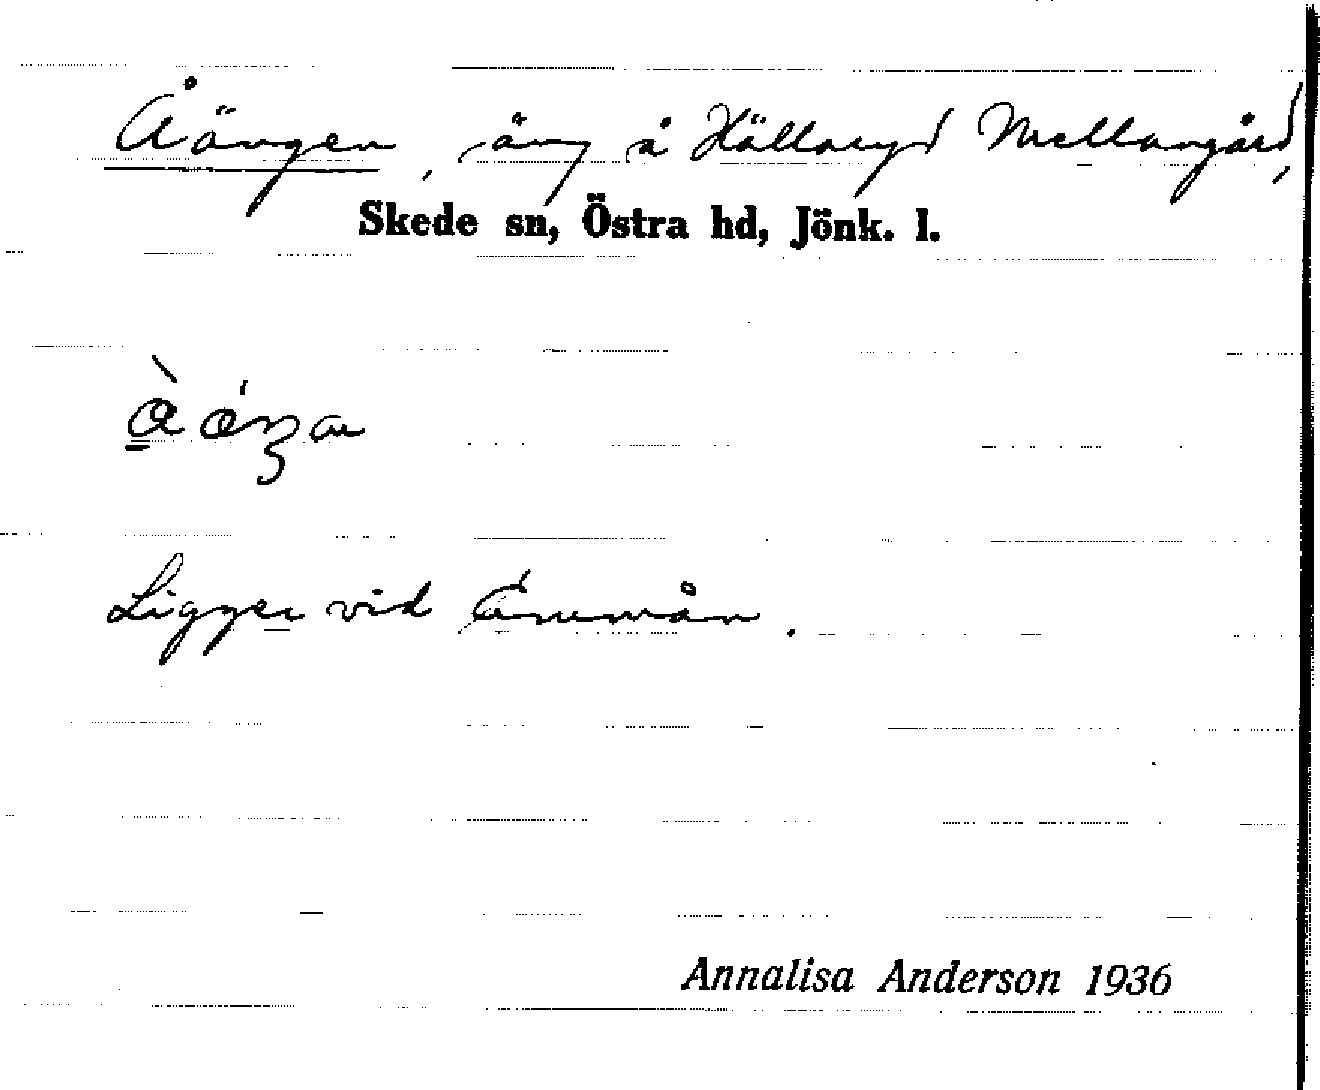 Åängen, äng å Hällaryd Mellangård,
Skede sn, Östra hd, Jönk. l.
Ligger vid Emmån.
Annalisa Anderson 1936